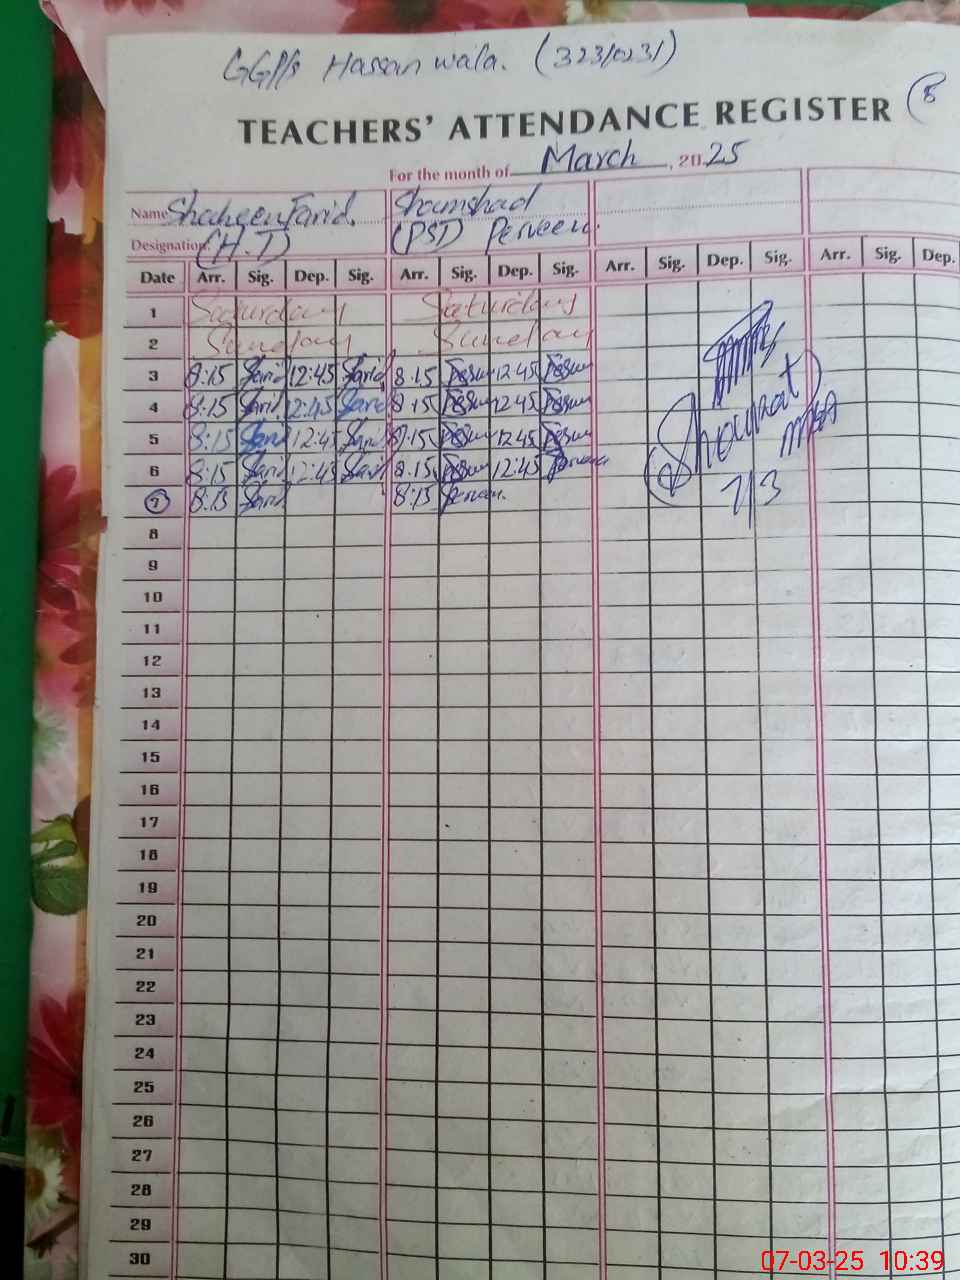 GGP/s Hassan wala. (32310231)
TEACHERS' ATTENDANCE REGISTER (8
For the month of March, 2025
Name Shaheen Farid. Shamshad
Designation (H.T) (PST) Perveen.
Date Arr. Sig. Dep. Sig. Arr. Sig. Dep. Sig. Arr. Sig. Dep. Sig. Arr. Sig. Dep.
1 Saturday Saturday
2 Sunday Sunday
3 8:15 Farid 12:45 Farid 8.15 12:45
4 8:15 Farid 12:45 Farid 8:15 12:45
5 8:15 Farid 12:45 Farid 8:15 12:45
6 8:15 Farid 12:45 Farid 8:15 12:45 Perveen
7 8:15 Farid 8:15 Perveen.
Shouqat
MEA
7/3
8
9
10
11
12
13
14
15
16
17
18
19
20
21
22
23
24
25
26
27
28
29
30
07-03-25 10:39